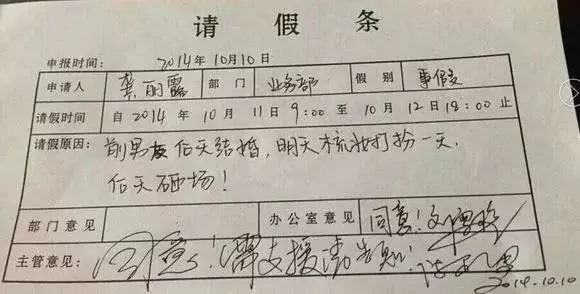 请假条
申报时间： 2014年10月10日
申请人 龚丽露 部门 业务部 假别 事假
请假时间 自2014年10月11日9:00至10月12日18:00止
请假原因：前男友后天结婚，明天梳妆打扮一天，
后天砸场！
部门意见 办公室意见 同意！
主管意见： 同意！需支援请告知！
2014.10.10